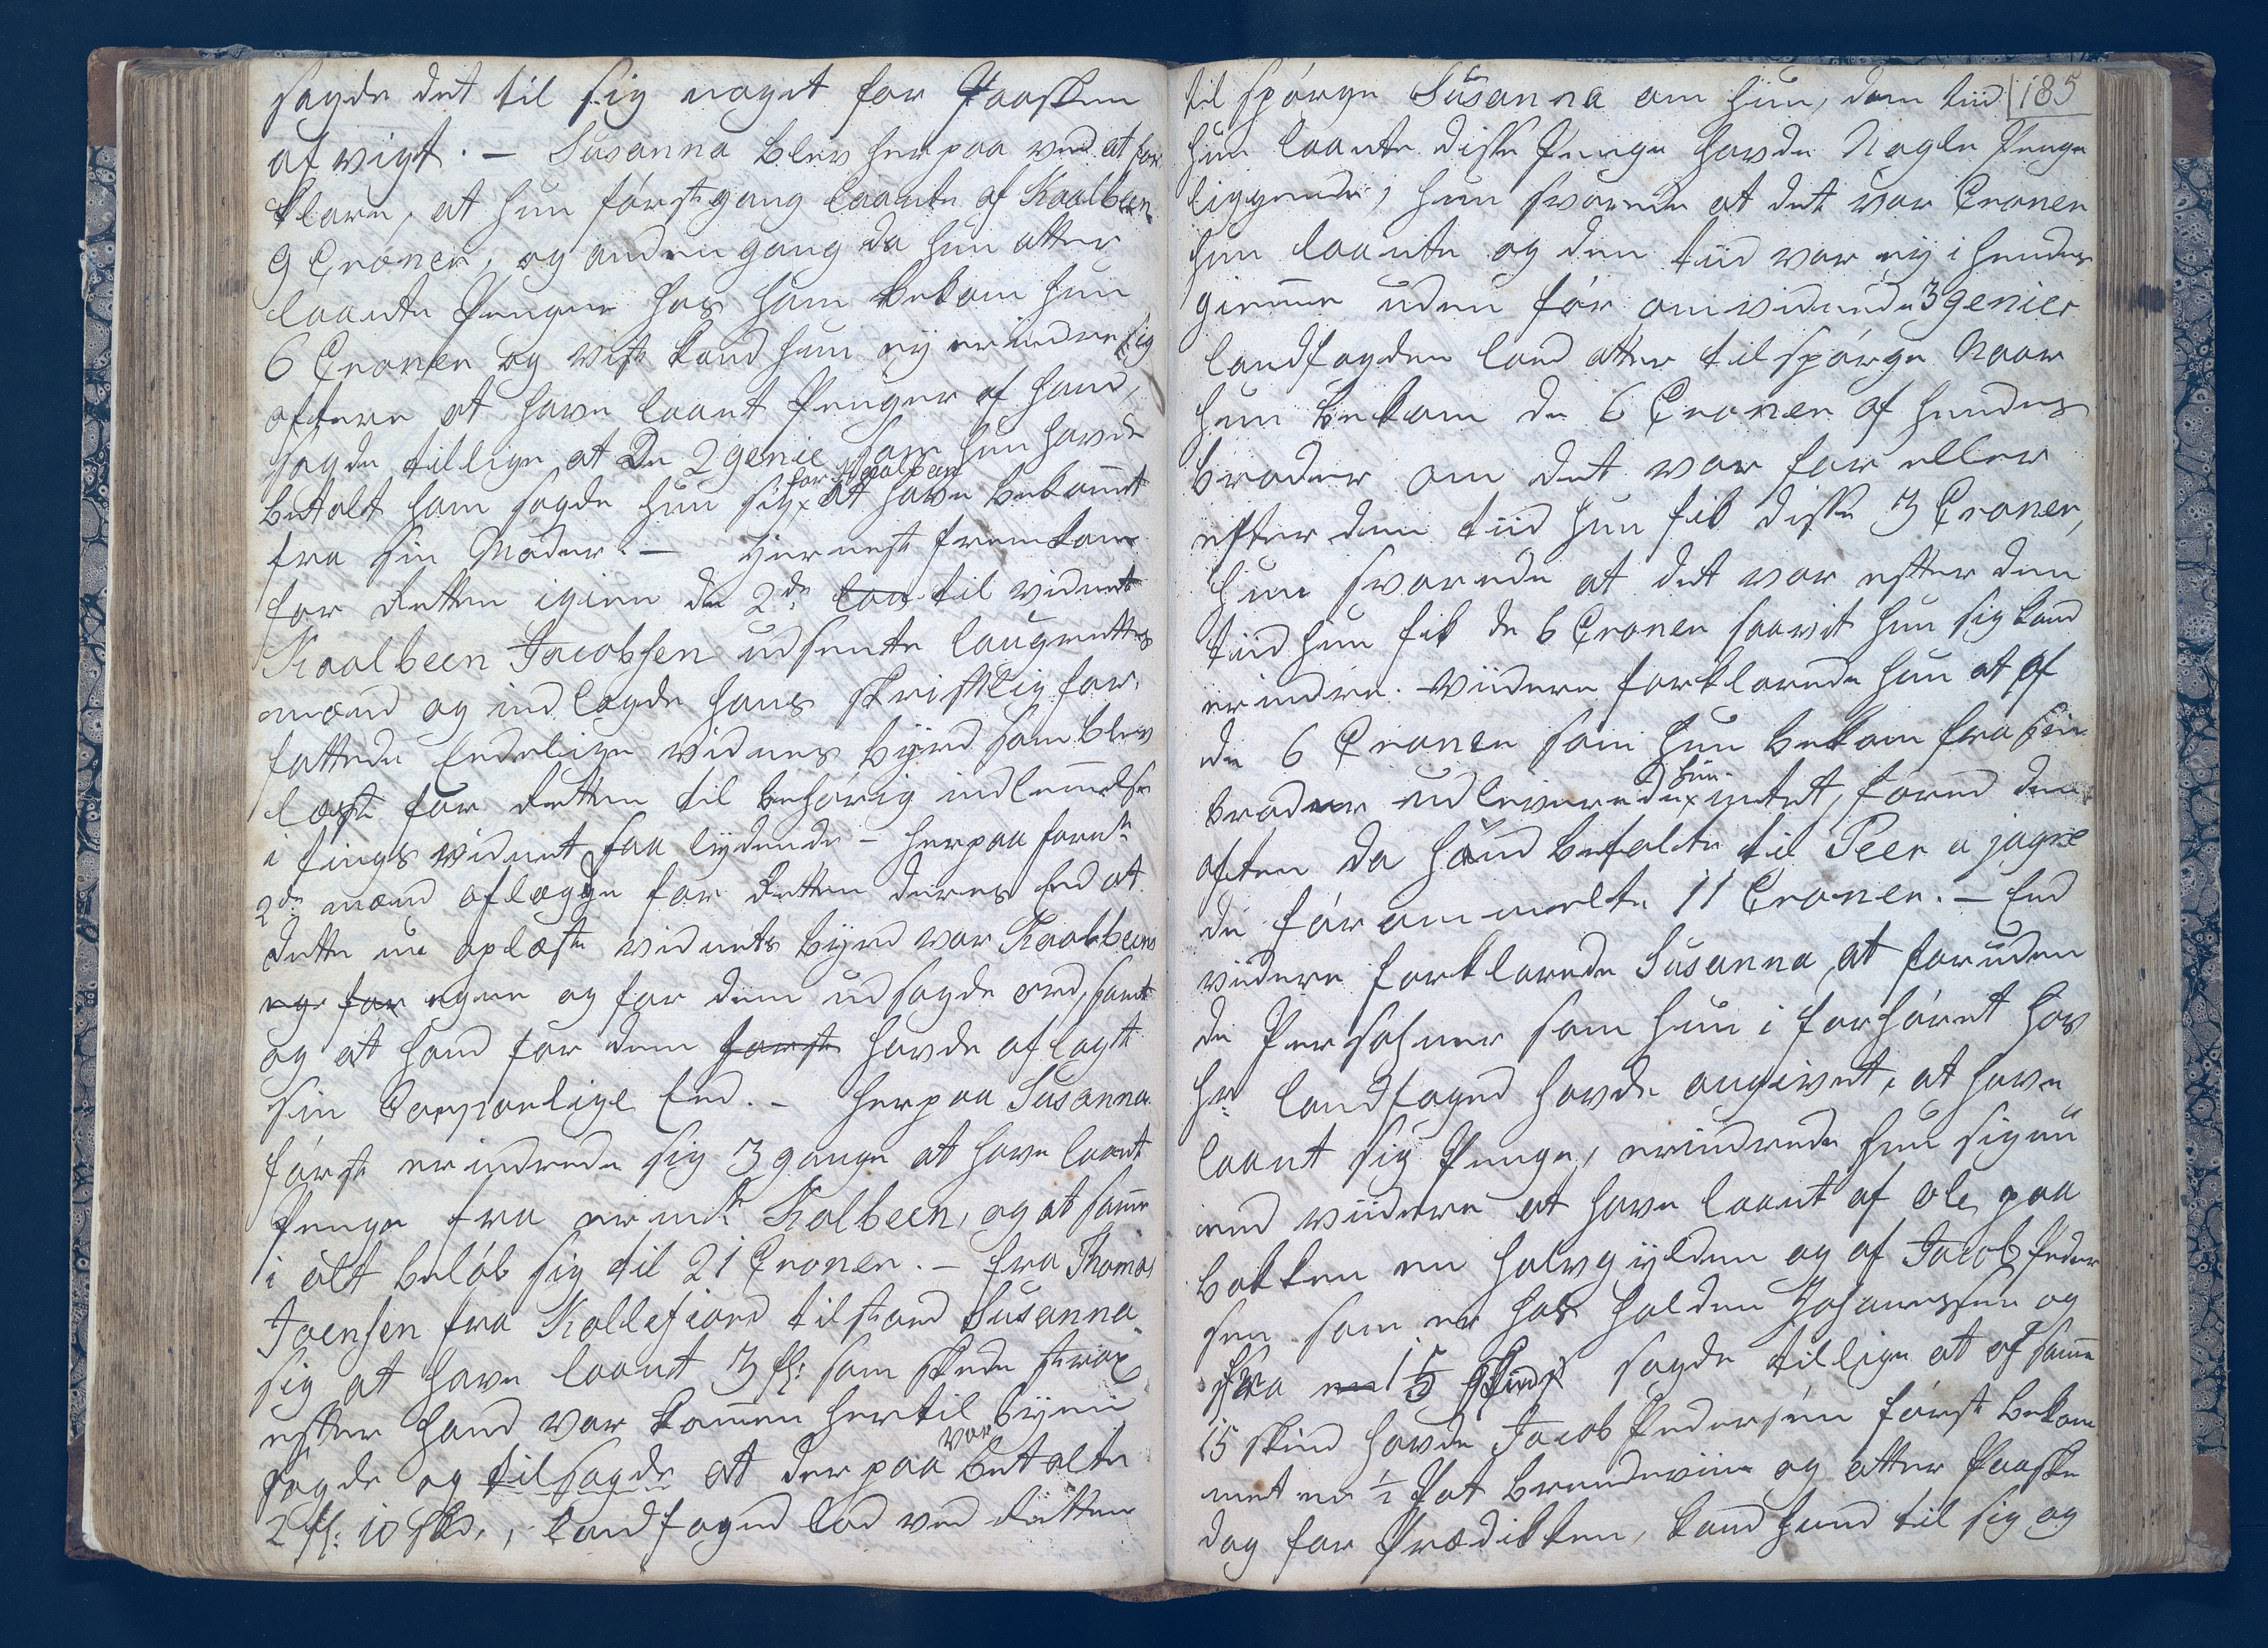 sagde det til sig noget for Paasken
af vigt. – Susanna blev herpaa ved at for
klare, at hun første gang laante af Kaalbein
9 Croner, og anden gang da hun atter
laante Penger hos ham bekom hun
6 Croner og vist kand hun ej erindre sig
oftere at have laant Penger af ham,
sagde tillige at de 2 genie som hun havde
betalt ham sagde hun sig for Kaalbein at have bekommet
fra sin Moder. – Hernest fremkom
for Retten igien de 2de til vidnet
Kaalbeen Jacobsen udsente laugrettes
mænd og indlagde hans skriftlig for
fattede Eedelige vidnes byrd som blev
læst for Retten til behørig indlemmelse
i tings vidnet saa lydende – herpaa forn:
2de mænd aflægde for Retten deres Eed at
dette nu oplæste vidnets byrd var Kaalbeens
ege for egne og for dem udsagde ord, samt
og at hand for dem første havde aflagt
sin Corporlige Eed. – herpaa Susanna
først erindrede sig 3 gange at have laant
Penge fra ermelte Kolbeen, og at samme
i alt beløb sig til 21 Croner. – fra Thomas
Joensen fra Kollefiord tilstoed Susanna
sig at have laant 3 fl: som skede strax
efter hand var kommen hertil byen
sagde og tilsagde at derpaa var betalte
2 fl: 10 skd., landfoged lod ved Retten
til spørge Susanna om hun, dem tiid 185
hun laante disse Penge havde Nogle Penge
liggende, hun svarede at det var Croner
hun laante og den tiid var ej i hendes
giemme uden før omvidnede 3 genier
landfogden lod atter tilspørge Naar
hun bekom de 6 Croner af hendes
broder om det var før eller
efter den tiid hun fik disse 3 Croner,
hun svarede at det var efter den
tiid hun fik de 6 Croner saavit hun sig kand
erindre. Viidere forklarede hun at af
de 6 Croner som hun bekom fra sin
broder udleverede hun intet, førend den
aften da hand betalte til Peer a jagre
de før ommelte 11 Croner. – End
videre forklarede Susanna, at foruden
de Persohner som hun i forhøret hos
hr: landfoged havde angivet, at have
laant sig Penge, erindrede hun sig nu
end viidere at have laant af Ole paa
bakken en halv gylden og af Jacob Peder
sen som er hos halden Johannessen og
fra en 15 skind sagde tillige at af samme
15 skind havde Jacob Pedersen først bekom
met en ½ Pot brendeviin og atter Paaske
dag for Prædikken, kand hund til sig og